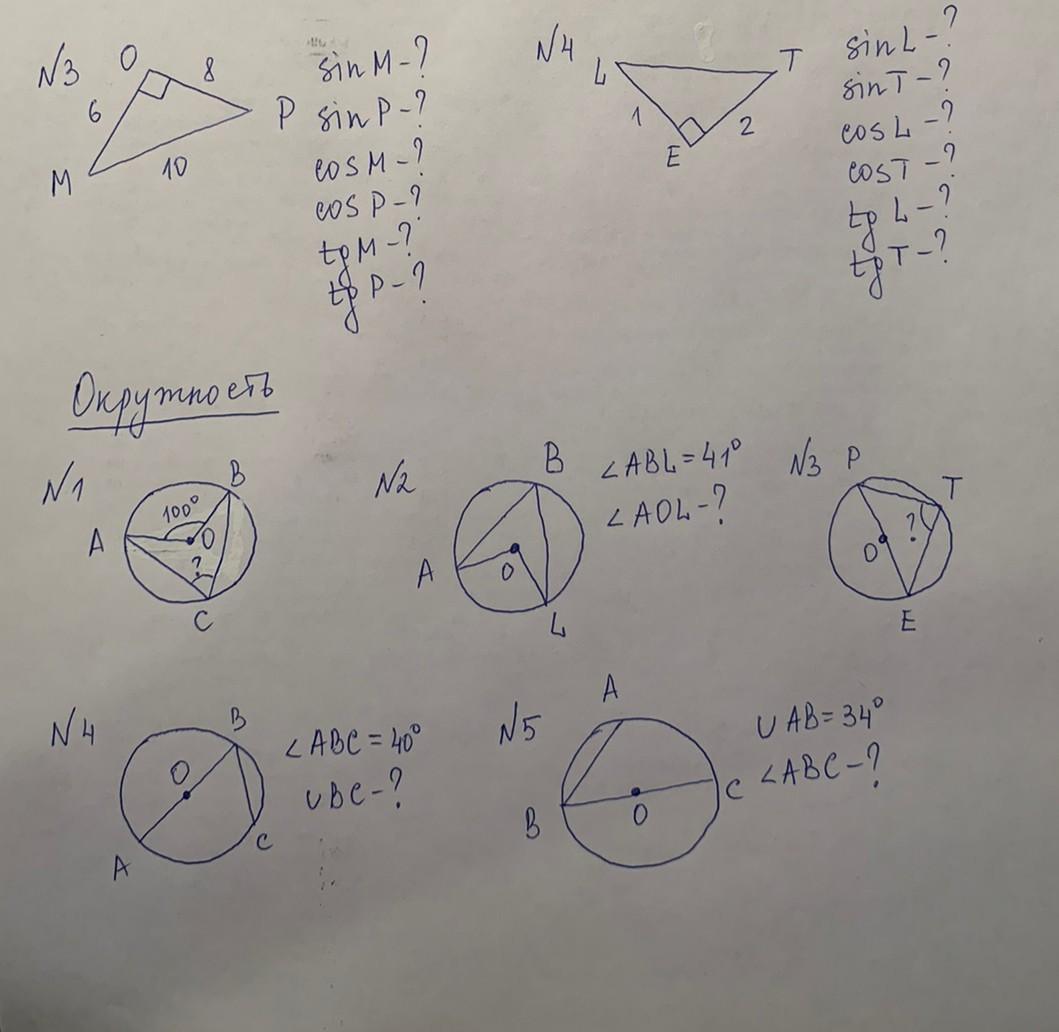 №3
O
8
6
P
M
10
sin M-?
sin P-?
cos M-?
cos P-?
tg M-?
tg P-?
№4
L
T
1
2
E
sin L-?
sin T-?
cos L-?
cos T-?
tg L-?
tg T-?
Окружность
№1
B
100°
A
O
?
C
№2
B
A
O
L
∠ABL=41°
∠AOL-?
№3
P
T
?
O
E
№4
B
O
A
C
∠ABC=40°
∪BC-?
№5
A
B
O
C
∪AB=34°
∠ABC-?